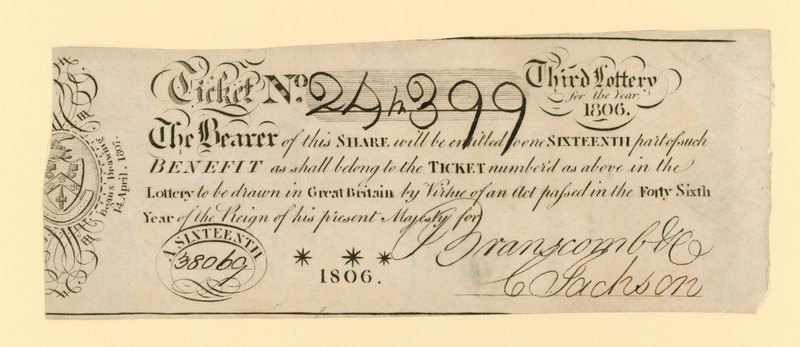 Ticket No. 24m399
Third Lottery
for the Year
1806.
The Bearer of this SHARE will be entitled to one SIXTEENTH part of such
BENEFIT as shall belong to the TICKET number'd as above in the
Lottery to be drawn in Great Britain by Virtue of an Act passed in the Forty Sixth
Year of the Reign of his present Majesty for
Branscomb & Co
C Jackson
A SIXTEENTH
38069
* * *
1806.
Begins Drawing
14 April. 1807.